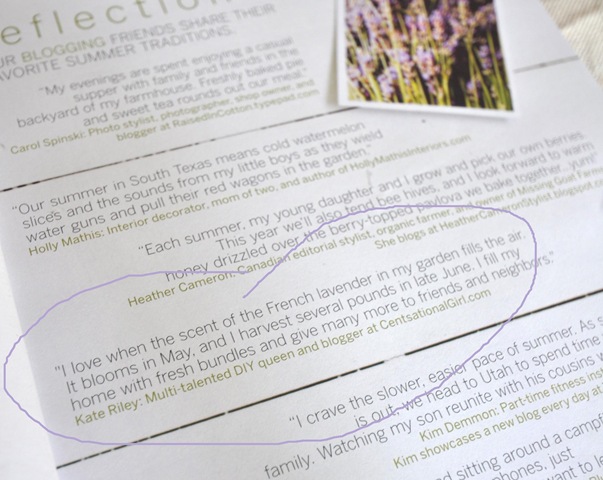 eflection
UR BLOGGING FRIENDS SHARE THEIR
AVORITE SUMMER TRADITIONS.
"My evenings are spent enjoying a casual
supper with family and friends in the
backyard of my farmhouse. Freshly baked pie
and sweet tea rounds out our meal."
Carol Spinski: Photo stylist, photographer, shop owner, and
blogger at RaisedinCotton.typepad.com
"Our summer in South Texas means cold watermelon
slices and the sounds from my little boys as they wield
water guns and pull their red wagons in the garden."
Holly Mathis: Interior decorator, mom of two, and author of HollyMathisInteriors.com
"Each summer, my young daughter and I grow and pick our own berries.
This year we'll also tend bee hives, and I look forward to warm
honey drizzled over the berry-topped pavlova we bake together, yum!"
Heather Cameron: Canadian editorial stylist, organic farmer, and owner of Missing Goat Farm
She blogs at HeatherCameronStylist.blogspot.co
"I love when the scent of the French lavender in my garden fills the air.
It blooms in May, and I harvest several pounds in late June. I fill my
home with fresh bundles and give many more to friends and neighbors."
Kate Riley: Multi-talented DIY queen and blogger at CentsationalGirl.com
"I crave the slower, easier pace of summer. As s
is out, we head to Utah to spend time
family. Watching my son reunite with his cousins w
Kim Demmon: Part-time fitness inst
Kim showcases a new blog every day at
d sitting around a campf
phones, just
want to le